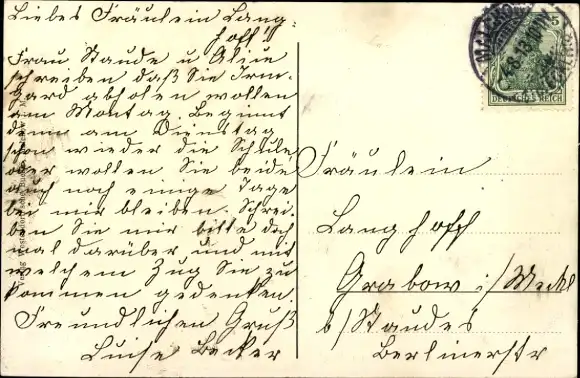 Liebes Fräulein Lang-
hoff!
Frau Staude u Aline
schreiben daß Sie Irm-
gard abholen wollen
am Montag. Beginnt
denn am Dienstag
schon wieder die Schule
oder wollen Sie beide
auch noch einige Tage
bei mir bleiben. Schrei-
ben Sie mir bitte doch
mal darüber und mit
welchem Zug Sie zu
kommen gedenken.
Freundlichen Gruß
Luise Becker
Fräulein
Langhoff
Grabow i/Meckl
b/Staudes
Berlinerstr
5
DEUTSCHES REICH